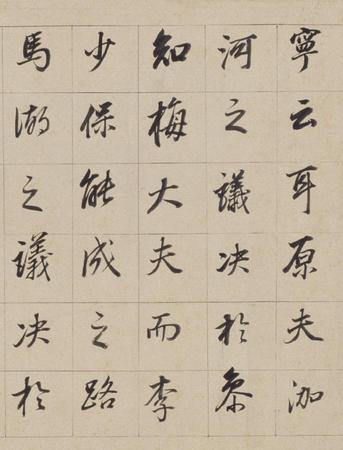 寧云耳原夫泇
河之議决於叅
知梅大夫而李
少保能成之路
馬湖之議决於